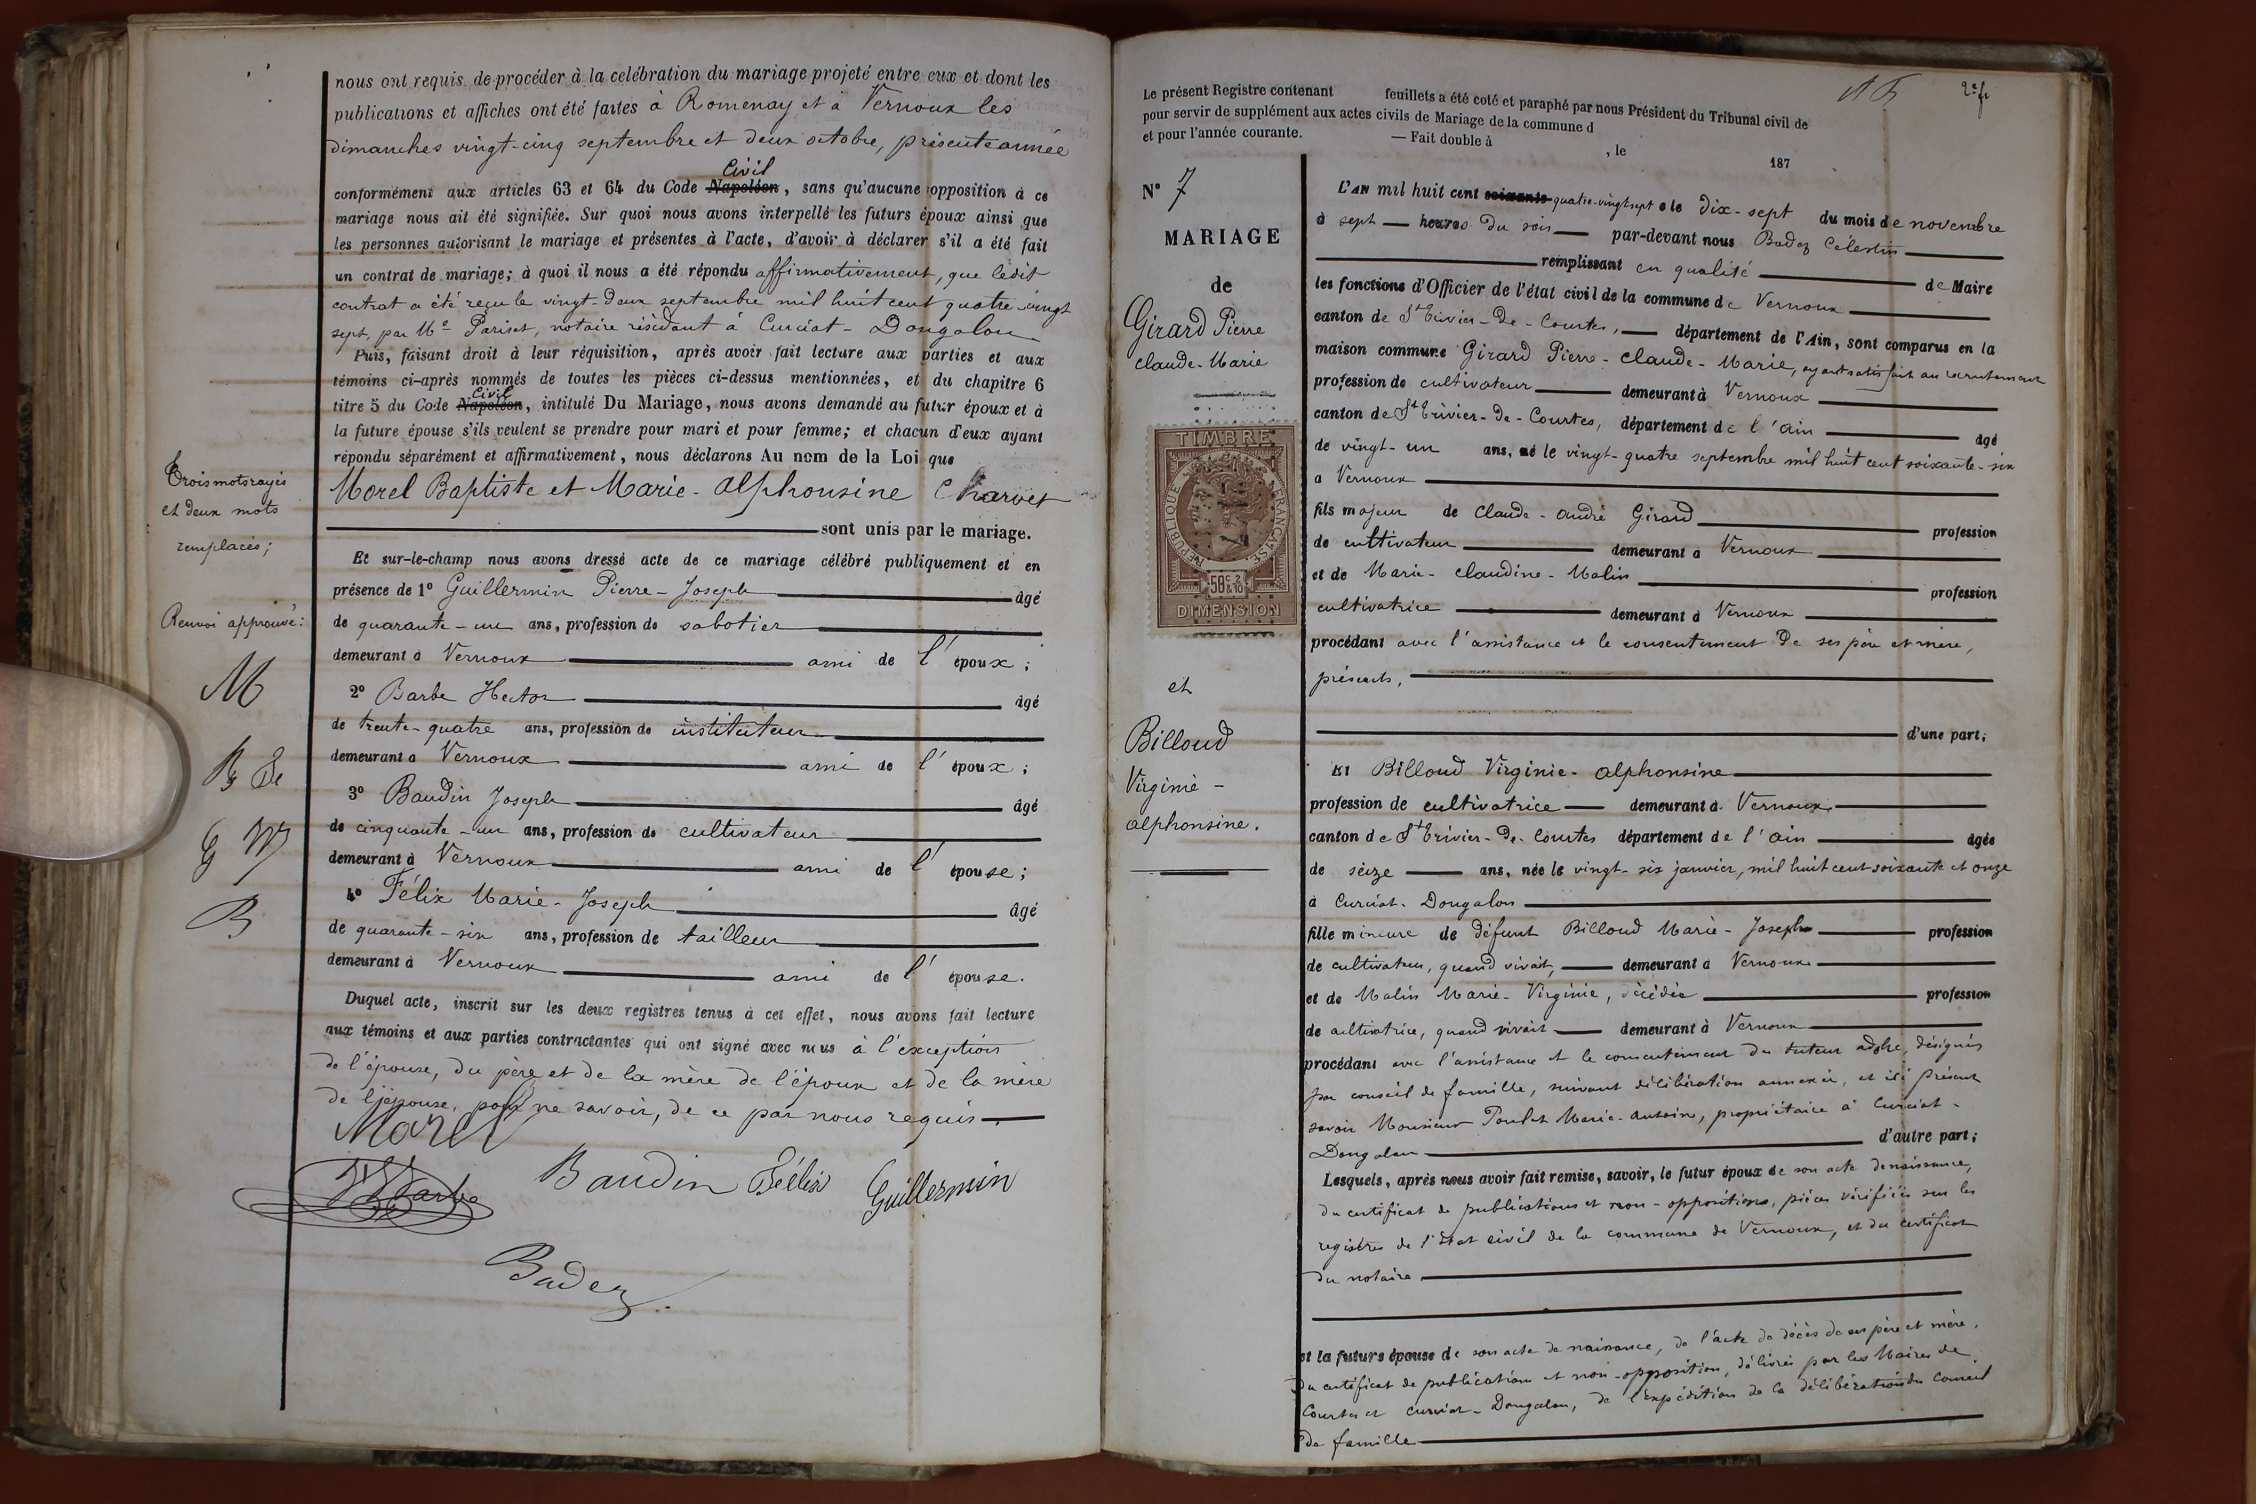 nous ont requis de procéder à la celébration du mariage projeté entre eux et dont les
publications et affiches ont été faites à Romenay et à Vernoux les
dimanches vingt-cinq septembre et deux octobre, présente année
Civil
conformément aux articles 63 et 64 du Code Napoléon, sans qu'aucune opposition à ce
mariage nous ait été signifiée. Sur quoi nous avons interpellé les futurs époux ainsi que
les personnes autorisant le mariage et présentes à l'acte, d'avoir à déclarer s'il a été fait
un contrat de mariage; à quoi il nous a été répondu affirmativement, que ledit
contrat a été reçu le vingt-deux septembre mil huit cent quatre-vingt
sept, par Me Pariset, notaire résidant à Curciat-Dongalon
Puis, faisant droit à leur réquisition, après avoir fait lecture aux parties et aux
témoins ci-après nommés de toutes les pièces ci-dessus mentionnées, et du chapitre 6
Civil
titre 5 du Code Napoléon, intitulé Du Mariage, nous avons demandé au futur époux et à
la future épouse s'ils veulent se prendre pour mari et pour femme; et chacun d'eux ayant
répondu séparément et affirmativement, nous déclarons Au nom de la Loi que
Morel Baptiste et Marie-Alphonsine Charvet
sont unis par le mariage.
Et sur-le-champ nous avons dressé acte de ce mariage célébré publiquement et en
présence de 1° Guillermin Pierre-Joseph âgé
de quarante-un ans, profession de sabotier
demeurant à Vernoux ami de l'époux;
2° Barbe Hector âgé
de trente-quatre ans, profession de instituteur
demeurant à Vernoux ami de l'époux;
3° Baudin Joseph âgé
de cinquante-un ans, profession de cultivateur
demeurant à Vernoux ami de l'épouse;
4° Félix Marie-Joseph âgé
de quarante-six ans, profession de tailleur
demeurant à Vernoux ami de l'épouse.
Duquel acte, inscrit sur les deux registres tenus à cet effet, nous avons fait lecture
aux témoins et aux parties contractantes qui ont signé avec nous à l'exception
de l'épouse, du père et de la mère de l'époux et de la mère
de l'épouse, pour ne savoir, de ce par nous requis.
Morel
Barbe Baudin Félix Guillermin
Badez
Trois mots rayés
et deux mots
remplacés;
Renvoi approuvé:
M
B
G
B
Le présent Registre contenant feuillets a été coté et paraphé par nous Président du Tribunal civil de
pour servir de supplément aux actes civils de Mariage de la commune d
et pour l'année courante. — Fait double à , le 187
2e f
N° 7
MARIAGE
de
Girard Pierre
Claude-Marie
TIMBRE
RÉPUBLIQUE FRANÇAISE
50c 2/10
DIMENSION
et
Billoud
Virginie-
alphonsine.
L'AN mil huit cent soixante quatre-vingt sept le dix-sept du mois de novembre
à sept heures du soir par-devant nous Badez Célestin
remplissant en qualité de Maire
les fonctions d'Officier de l'état civil de la commune de Vernoux
canton de St Trivier-de-Courtes, département de l'Ain, sont comparus en la
maison commune Girard Pierre-Claude-Marie, ayant satisfait au recrutement
profession de cultivateur demeurant à Vernoux
canton de St Trivier-de-Courtes, département de l'ain âgé
de vingt-un ans, né le vingt-quatre septembre mil huit cent soixante-six
a Vernoux
fils majeur de Claude-André Girard profession
de cultivateur demeurant à Vernoux
et de Marie-Claudine-Malin profession
cultivatrice demeurant à Vernoux
procédant avec l'assistance et le consentement de ses père et mère,
présents,
d'une part;
Et Billoud Virginie-alphonsine
profession de cultivatrice demeurant à Vernoux
canton de St Trivier-de-Courtes département de l'ain âgée
de seize ans, née le vingt-six janvier, mil huit cent soixante et onze
à Curciat-Dongalon
fille mineure de défunt Billoud Marie-Joseph profession
de cultivateur, quand vivait, demeurant à Vernoux
et de Malin Marie-Virginie, décédée profession
de cultivatrice, quand vivait demeurant à Vernoux
procédant avec l'assistance et le consentement du tuteur adohc, désigné
par conseil de famille, suivant délibération annexée, et ici présent
savoir Monsieur Poulet Marie-Antoine, propriétaire à Curciat-
Dongalon d'autre part;
Lesquels, après nous avoir fait remise, savoir, le futur époux de son acte de naissance,
du certificat de publications et non-oppositions, pièces vérifiées sur les
registres de l'état civil de la commune de Vernoux, et du certificat
du notaire
et la future épouse de son acte de naissance, de l'acte de décès de ses père et mère,
du certificat de publications et non-opposition, délivrés par les Maires de
Courtes et Curciat-Dongalon, de l'expédition de la délibération du Conseil
de famille